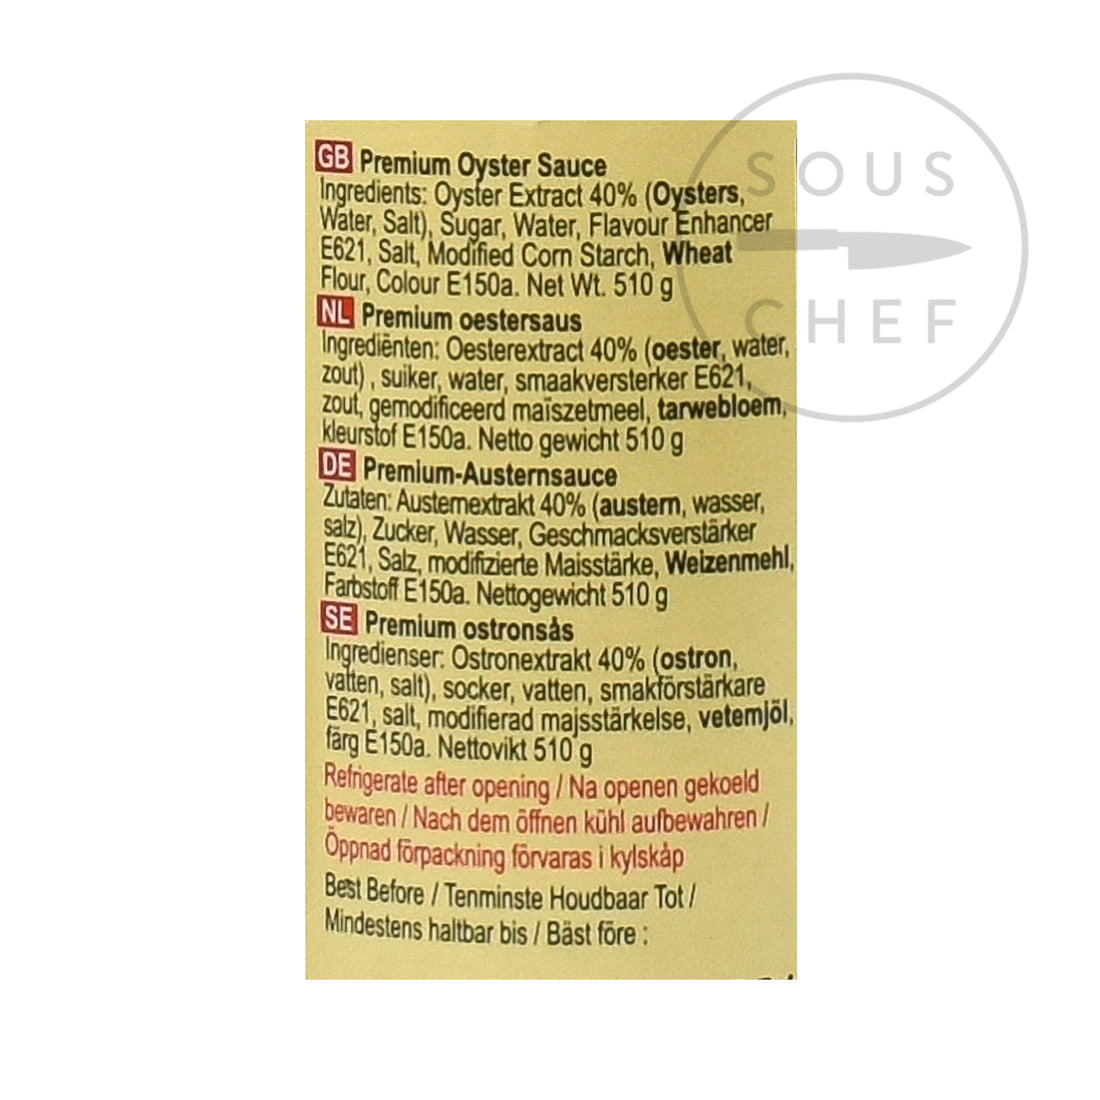 SOUS
CHEF
GB Premium Oyster Sauce
Ingredients: Oyster Extract 40% (Oysters,
Water, Salt), Sugar, Water, Flavour Enhancer
E621, Salt, Modified Corn Starch, Wheat
Flour, Colour E150a. Net Wt. 510 g
NL Premium oestersaus
Ingrediënten: Oesterextract 40% (oester, water,
zout) , suiker, water, smaakversterker E621,
zout, gemodificeerd maïszetmeel, tarwebloem,
kleurstof E150a. Netto gewicht 510 g
DE Premium-Austernsauce
Zutaten: Austernextrakt 40% (austern, wasser,
salz), Zucker, Wasser, Geschmacksverstärker
E621, Salz, modifizierte Maisstärke, Weizenmehl,
Farbstoff E150a. Nettogewicht 510 g
SE Premium ostronsås
Ingredienser: Ostronextrakt 40% (ostron,
vatten, salt), socker, vatten, smakförstärkare
E621, salt, modifierad majsstärkelse, vetemjöl,
färg E150a. Nettovikt 510 g
Refrigerate after opening / Na openen gekoeld
bewaren / Nach dem öffnen kühl aufbewahren /
Öppnad förpackning förvaras i kylskåp
Best Before / Tenminste Houdbaar Tot /
Mindestens haltbar bis / Bäst före :